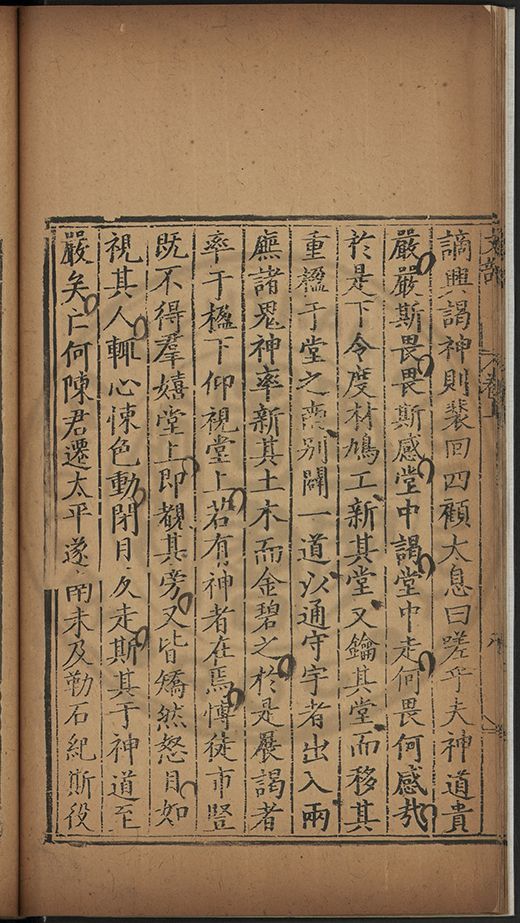 謫興謁神則裴回四顧太息曰嗟乎夫神道貴
嚴嚴斯畏畏斯感堂中謁堂中走何畏何感哉
於是下令度材鳩工新其堂又鑰其堂而移其
重楹于堂之
别闢一道以通守宇者出入兩
廡諸鬼神率新其土木而金碧之於是展謁者
率于楹下仰視堂上若有神者在焉慱徒市豎
既不得羣嬉堂上即觀其旁又皆矯然怒目如
視其人輒心悚色動閉目反走斯其于神道至
嚴矣亡何陳君遷太平遂
南未及勒石紀斯役